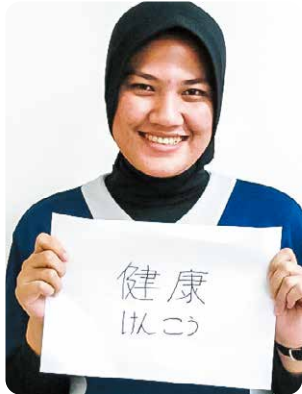 健康
けんこう